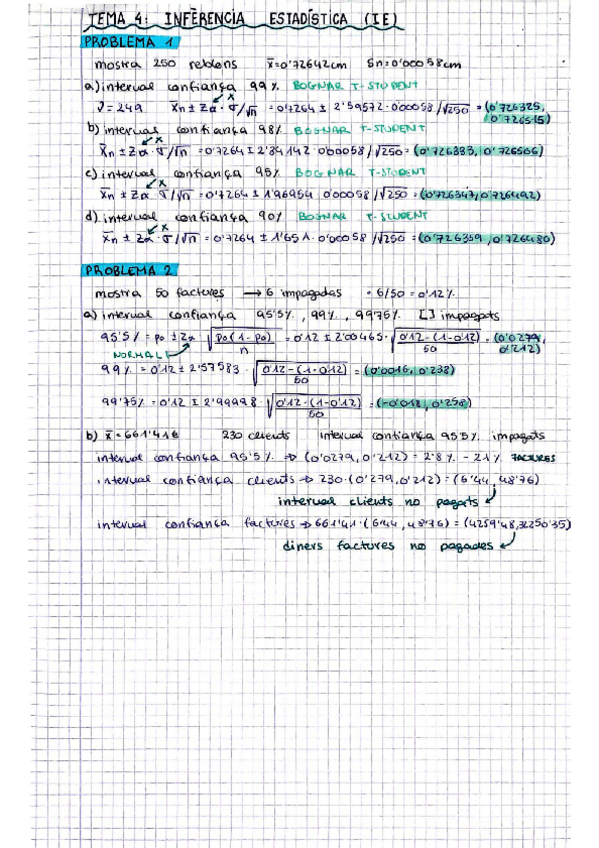 TEMA 4: INFERÈNCIA ESTADÍSTICA (IE)
PROBLEMA 1
mostra 250 reblons x̄=0'72642cm Sn=0'00058cm
a) interval confiança 99% BOGNAR T-STUDENT
ν=249 x̄n ± zα · σ/√n = 0'7264 ± 2'59572 · 0'00058/√250 = (0'726325, 0'726515)
b) interval confiança 98% BOGNAR T-STUDENT
x̄n ± zα · σ/√n = 0'7264 ± 2'34142 · 0'00058/√250 = (0'726333, 0'726506)
c) interval confiança 95% BOGNAR T-STUDENT
x̄n ± zα σ/√n = 0'7264 ± 1'96954 0'00058/√250 = (0'726347, 0'726492)
d) interval confiança 90% BOGNAR T-STUDENT
x̄n ± zα · σ/√n = 0'7264 ± 1'651 · 0'00058/√250 = (0'726359, 0'726480)
PROBLEMA 2
mostra 50 factures → 6 impagades · 6/50 = 0'12%
a) interval confiança 95'5%, 99%, 99'75% [] impagats
95'5% = po ± zα √po(1-po)/n = 0'12 ± 2'00465 · √0'12-(1-0'12)/50 = (0'0279, 0'212)
NORMAL
99% = 0'12 ± 2'57583 · √0'12-(1-0'12)/50 = (0'0016, 0'238)
99'75% = 0'12 ± 2'99998 · √0'12-(1-0'12)/50 = (-0'018, 0'258)
b) x̄ = 661'41€ 230 clients interval confiança 95'5% impagats
interval confiança 95'5% → (0'0279, 0'212) = 2'8% - 21% FACTURES
interval confiança clients → 230 · (0'279, 0'212) = (6'44, 48'76)
interval clients no pagats
interval confiança factures → 661'41 · (6'44, 48'76) = (4259'48, 32250'35)
diners factures no pagades